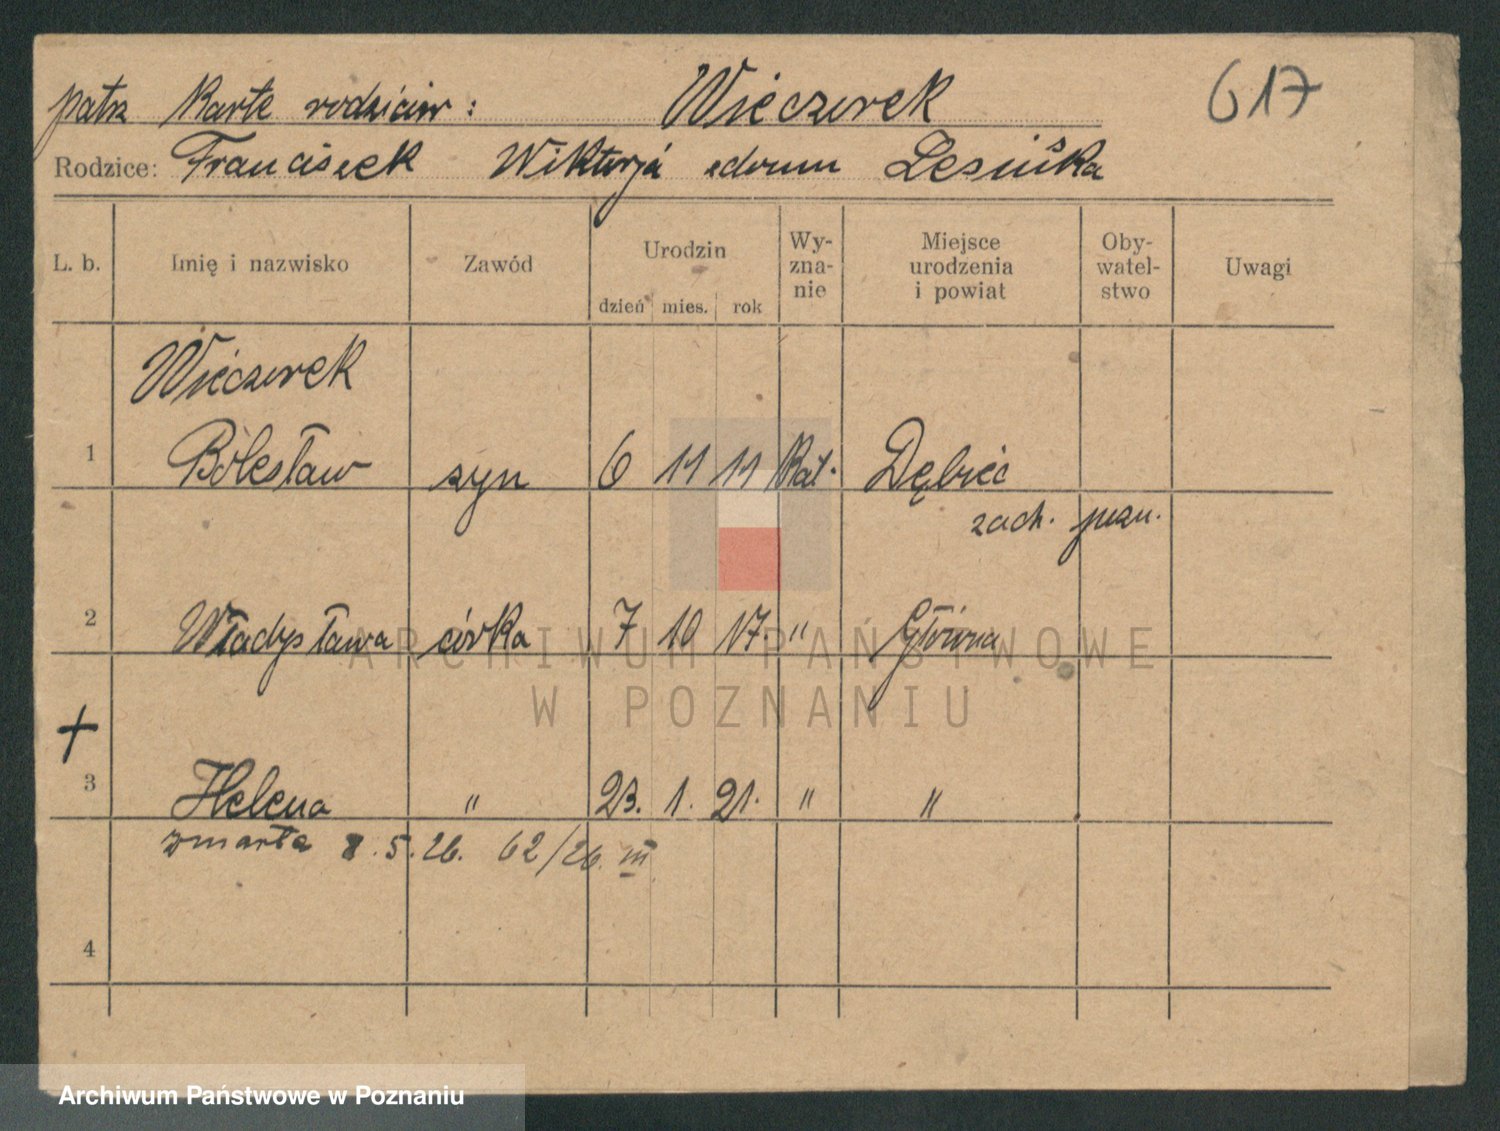 patrz Kartę rodziców: Wieczorek 617
Rodzice: Franciszek Wiktorja z domu Lesińska
L. b. Imię i nazwisko Zawód Urodzin Wy-zna-nie Miejsce urodzenia i powiat Oby-watel-stwo Uwagi
dzień mies. rok
Wieczorek
1 Bolesław syn 6 11 11 Kat. Dębiec
zach. pozn.
2 Władysława córka 7 10 17. " Główna
+
3 Helena " 23. 1. 21. " "
zmarła 8.5.26. 62/26 III
4
ARCHIWUM PAŃSTWOWE
W POZNANIU
Archiwum Państwowe w Poznaniu